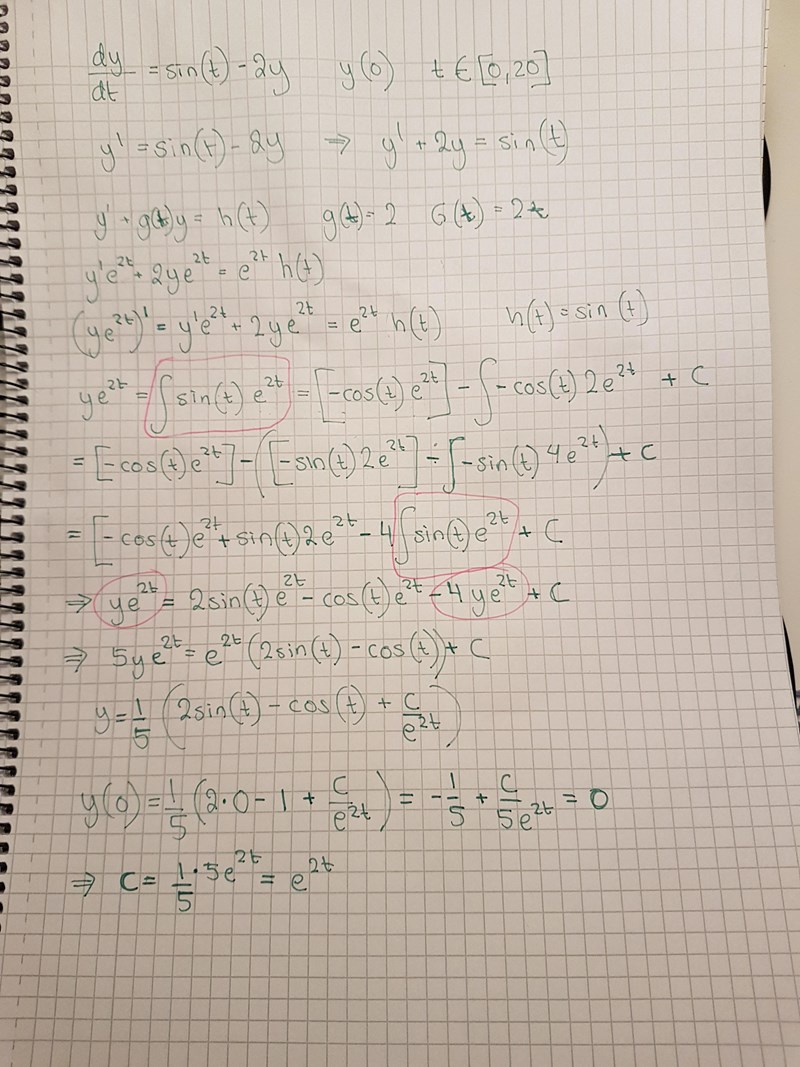 dy/dt = sin(t) - 2y y(0) t ∈ [0,20]
y' = sin(t) - 2y ⇒ y' + 2y = sin(t)
y' + g(t)y = h(t) g(t) = 2 G(t) = 2t
y'e^2t + 2ye^2t = e^2t h(t)
(ye^2t)' = y'e^2t + 2ye^2t = e^2t h(t) h(t) = sin(t)
ye^2t = ∫sin(t) e^2t = [-cos(t) e^2t] - ∫-cos(t) 2e^2t + C
= [-cos(t)e^2t] - ([-sin(t) 2e^2t] ÷ ∫-sin(t) 4e^2t) + C
= [-cos(t)e^2t + sin(t)2e^2t - 4∫sin(t)e^2t + C
⇒ ye^2t = 2sin(t)e^2t - cos(t)e^2t - 4ye^2t + C
⇒ 5ye^2t = e^2t (2sin(t) - cos(t)) + C
y = 1/5 (2sin(t) - cos(t) + C/e^2t)
y(0) = 1/5 (2·0 - 1 + C/e^2t) = -1/5 + C/5e^2t = 0
⇒ C = 1/5 · 5e^2t = e^2t